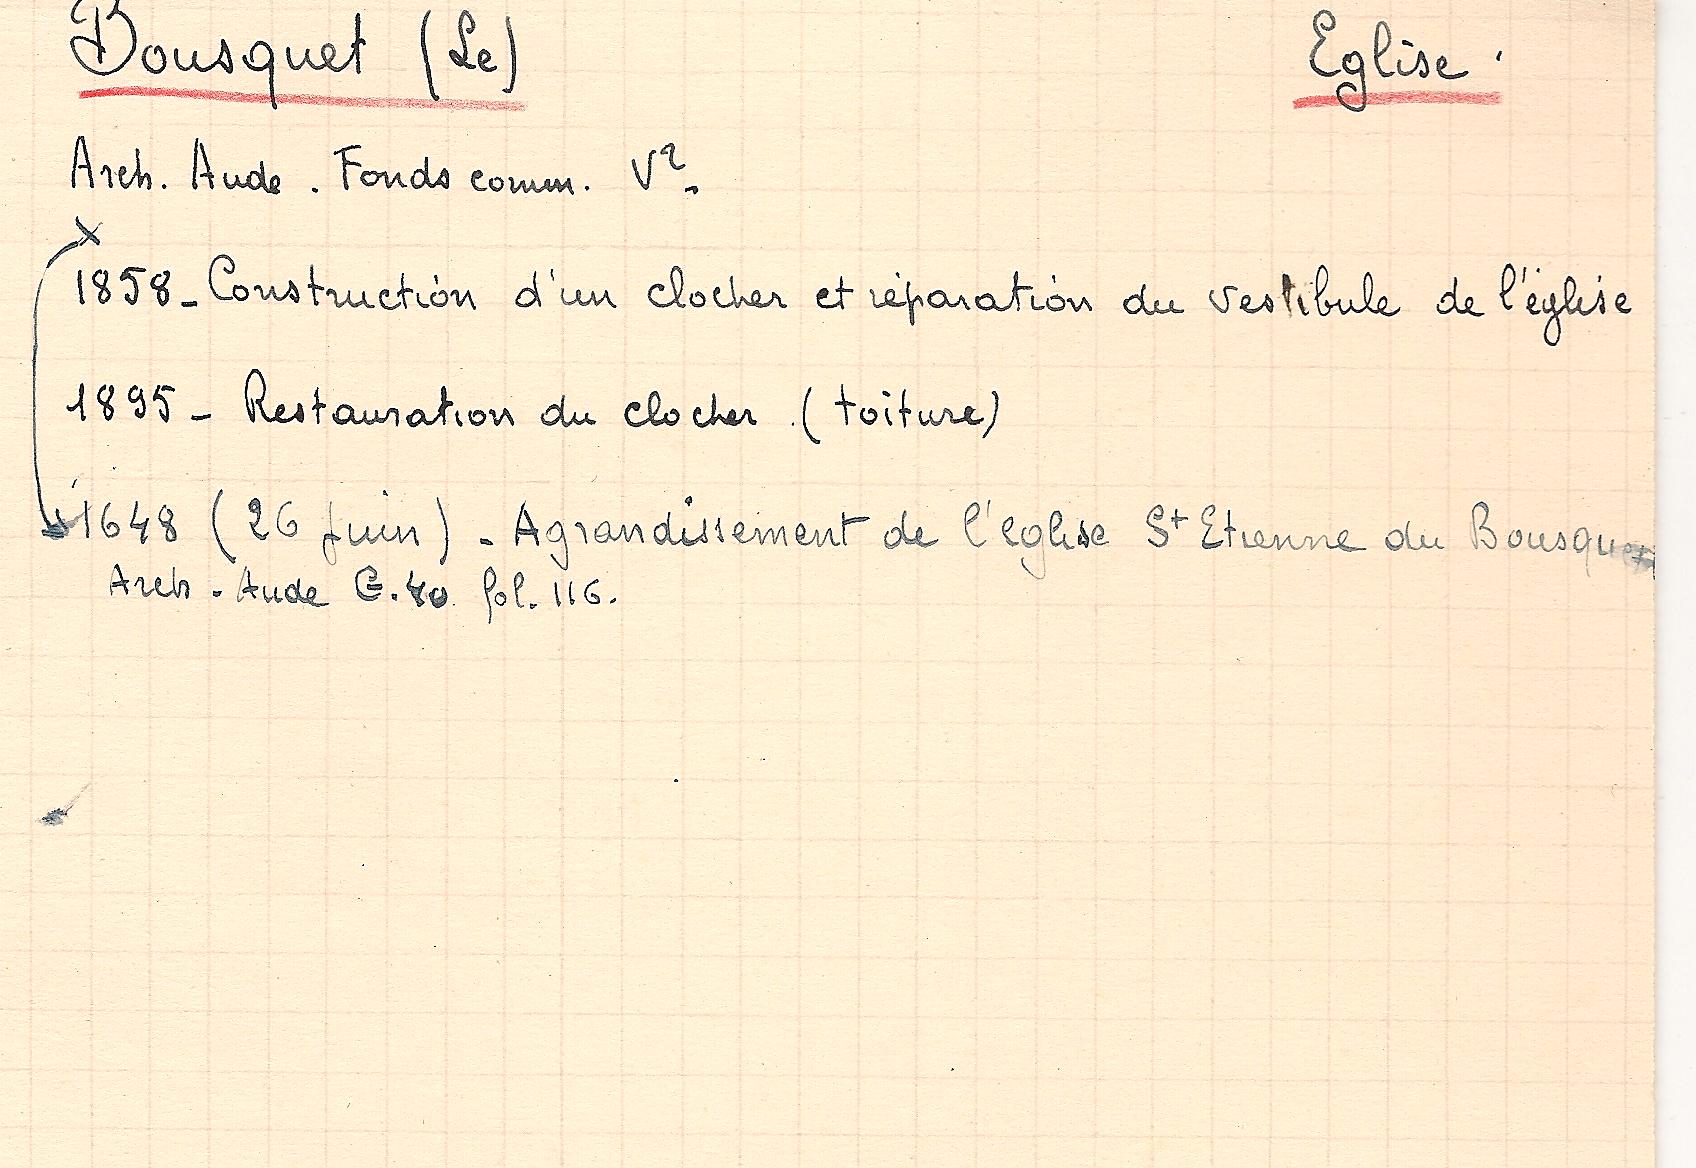 Bousquet (Le) Eglise.
Arch. Aude. Fonds comm. V².
x
1858 - Construction d'un clocher et réparation du vestibule de l'église
1895 - Restauration du clocher. (toiture)
1648 (26 juin) - Agrandissement de l'église St Etienne du Bousquet
Arch. Aude G.40 fol. 116.